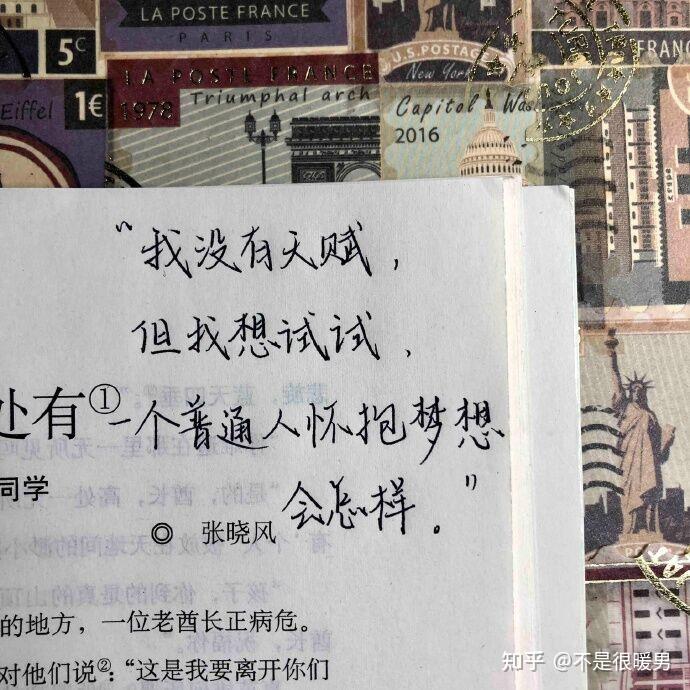 LA POSTE FRANCE
PARIS
5C
U.S.POSTAGE
New York
FRANC
LA POSTE FRANCE
Eiffel
1€
1978
Triumphal arch
Capitol Was
2016
“我没有天赋，
但我想试试，
处有①一个普通人怀抱梦想
会怎样。”
同学
◎ 张晓风
的地方，一位老酋长正病危。
对他们说②：“这是我要离开你们
知乎 @不是很暖男